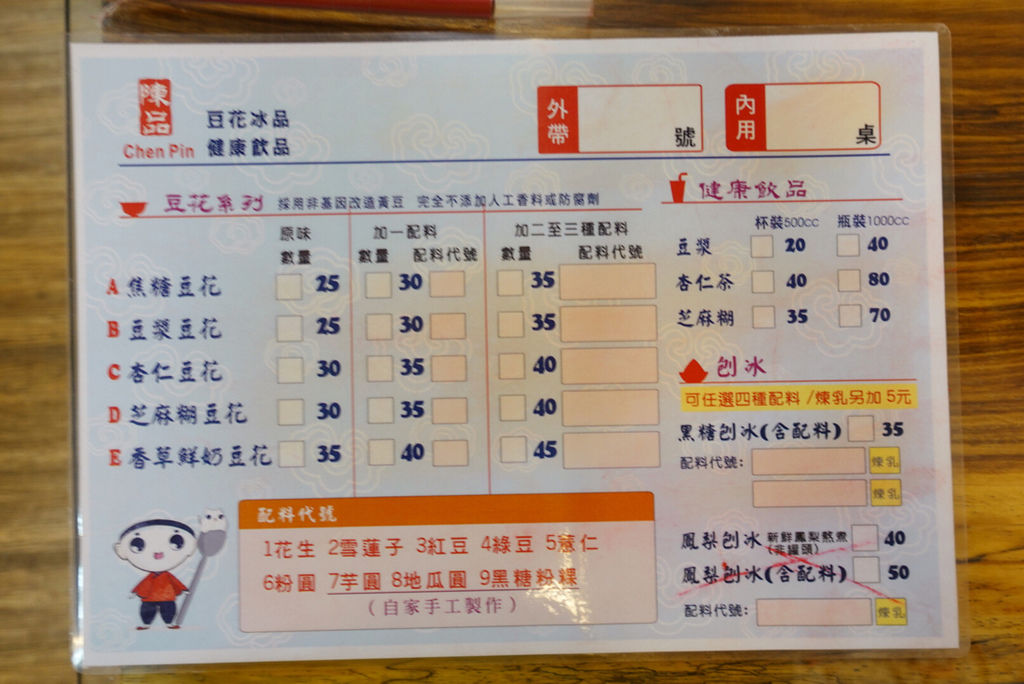 陳品
Chen Pin
豆花冰品
健康飲品
外帶 號
內用 桌
豆花系列 採用非基因改造黃豆 完全不添加人工香料或防腐劑
原味 加一配料 加二至三種配料
數量 數量 配料代號 數量 配料代號
A 焦糖豆花 25 30 35
B 豆漿豆花 25 30 35
C 杏仁豆花 30 35 40
D 芝麻糊豆花 30 35 40
E 香草鮮奶豆花 35 40 45
配料代號
1花生 2雪蓮子 3紅豆 4綠豆 5薏仁
6粉圓 7芋圓 8地瓜圓 9黑糖粉粿
(自家手工製作)
健康飲品
杯裝500cc 瓶裝1000cc
豆漿 20 40
杏仁茶 40 80
芝麻糊 35 70
刨冰
可任選四種配料/煉乳另加5元
黑糖刨冰(含配料) 35
配料代號: 煉乳
煉乳
鳳梨刨冰 新鮮鳳梨熬煮 40
(非罐頭)
鳳梨刨冰(含配料) 50
配料代號: 煉乳